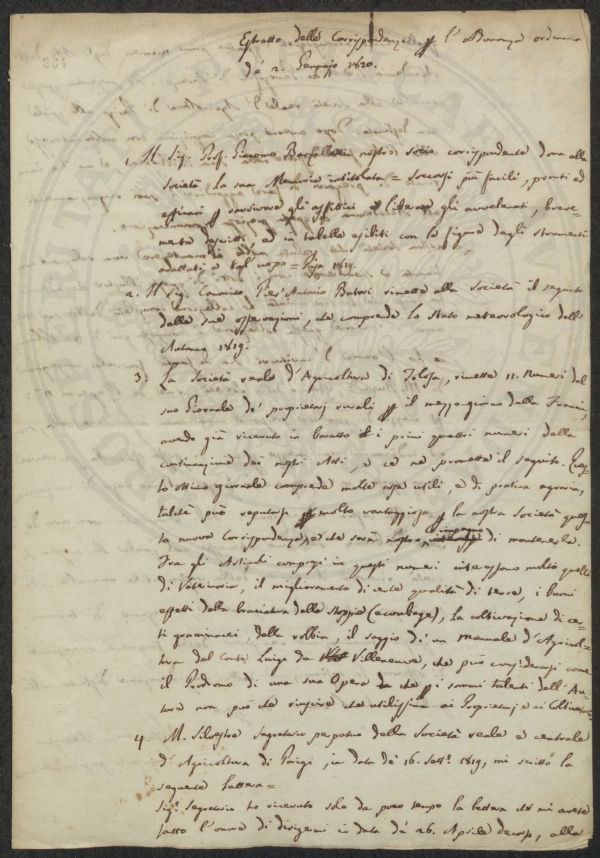 Estratto della Corrispondenza p l'Adunanza ordinaria
de' 2. Gennajo 1820.
1. Il Sig. Prof. Giacomo Barzellotti nostro socio corrispondente dona alla
Società la sua Memoria intitolata = Soccorsi più facili, pronti ed
efficaci p ravvivare gli asfittici e liberare gli avvelenati, breve-
mente descritti, ed in tabelle esibiti con le figure degli strumenti
adattati a tal' uopo = Pisa 1819.
2. Il Sig. Canonico Pier' Antonio Butori rimette alla Società il seguito
delle sue osservazioni, che comprende lo stato meteorologico dell'
Autunno 1819.
3. La Società reale d'Agricoltura di Tolosa, rimette 11. Numeri del
suo Giornale de' proprietarj rurali p il mezzogiorno della Francia,
avendo già ricevuto in baratto i primi quattro numeri della
continuazione dei nostri Atti, e ce ne promette il seguito. Ques-
to ottimo giornale comprende molte cose utili, e di pratica agraria,
talchè può reputarsi molto vantaggiosa p la nostra Società ques-
ta nuova Corrispondenza, e che sarà nostro impegno di mantenerla.
Fra gli Articoli compresi in questi numeri interessano molto quelli
di Veterinaria, il miglioramento di certe qualità di terre, i buoni
effetti della bruciatura delle stoppie (ecoubage), la coltivazione di cer-
ti graminacei, della robbia, il saggio di un manuale d'Agricol-
tura del Conte Luigi de Villeneuve, che può considerarsi come
il Prodromo di una sua Opera che p i sommi talenti dell'Au-
tore non può che riuscire che utilissima ai Proprietarj e ai Coltivatori.
4. M. Silvestre Segretario perpetuo della Società reale e centrale
d'Agricoltura di Parigi, in data de' 16. Sett. 1819, mi scrisse la
seguente Lettera =
Sig. Segretario ho ricevuto solo da poco tempo la lettera che mi avete
fatto l'onore di dirigermi in data de' 26. Aprile decorso, alla